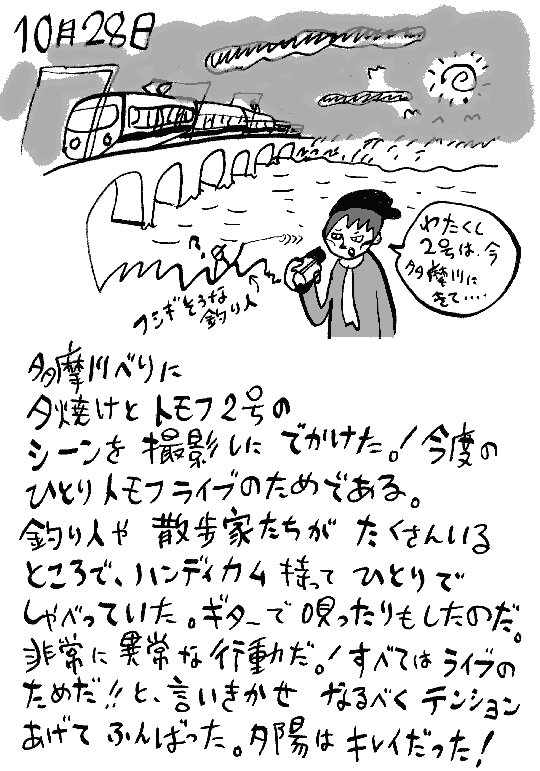 10月28日
わたくし
2号は、今
多摩川に
きて‥‥
?
フシギそうな
釣り人
多摩川べりに
夕焼けと トモフ2号の
シーンを 撮影しに でかけた。! 今度の
ひとりトモフライブのためである。
釣り人や 散歩家たちが たくさんいる
ところで、ハンディカム 持って ひとりで
しゃべっていた。ギターで 唄ったりもしたのだ。
非常に異常な行動だ。! すべては ライブの
ためだ!! と、言いきかせ なるべく テンション
あげて ふんばった。夕陽は キレイだった!